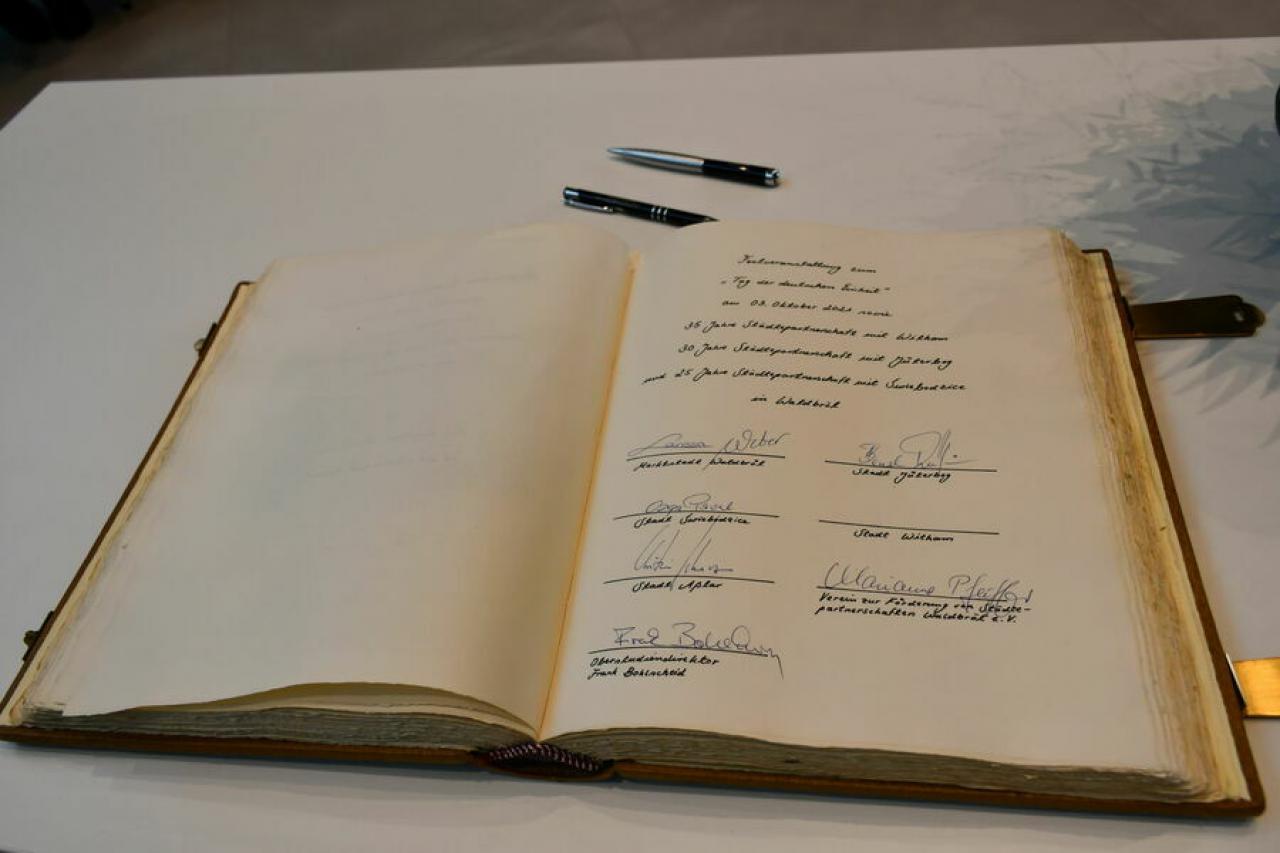 Festveranstaltung zum
„Tag der deutschen Einheit"
am 03. Oktober 2021 sowie
35 Jahre Städtepartnerschaft mit Witham
30 Jahre Städtepartnerschaft mit Jüterbog
und 25 Jahre Städtepartnerschaft mit Swiebodzice
in Waldbröl
Larissa Weber
Marktstadt Waldbröl
Stadt Jüterbog
Stadt Swiebodzice
Stadt Witham
Stadt Aplar
Marianne Pfeiffer
Verein zur Förderung von Städte-
partnerschaften Waldbröl e.V.
Oberstudiendirektor
Frank Bohlscheid